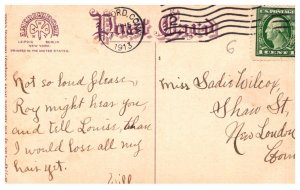 LEIPZIG BERLIN
NEW YORK
PRINTED IN THE UNITED STATES
Post Card
FORD, CONN
1913
1 CENT 1
6
Not so loud please
Roy might hear you,
and tell Louise, than
I would lose all my
hair yet.
Will
Miss Sadie Wilcox,
Shaw St,
New London
Conn